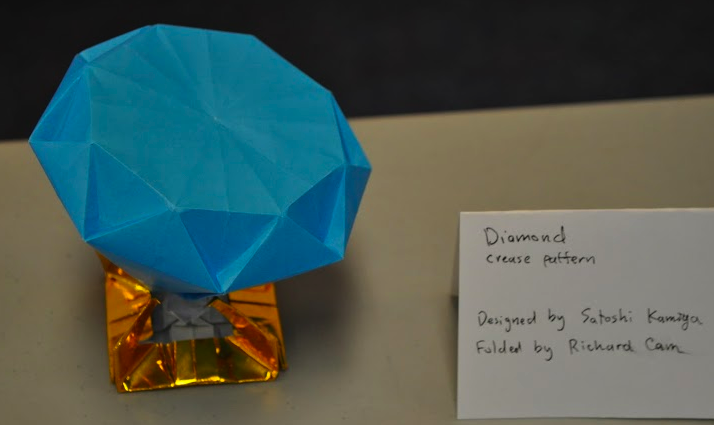 Diamond
crease pattern
Designed by Satoshi Kamiya
Folded by Richard Cam